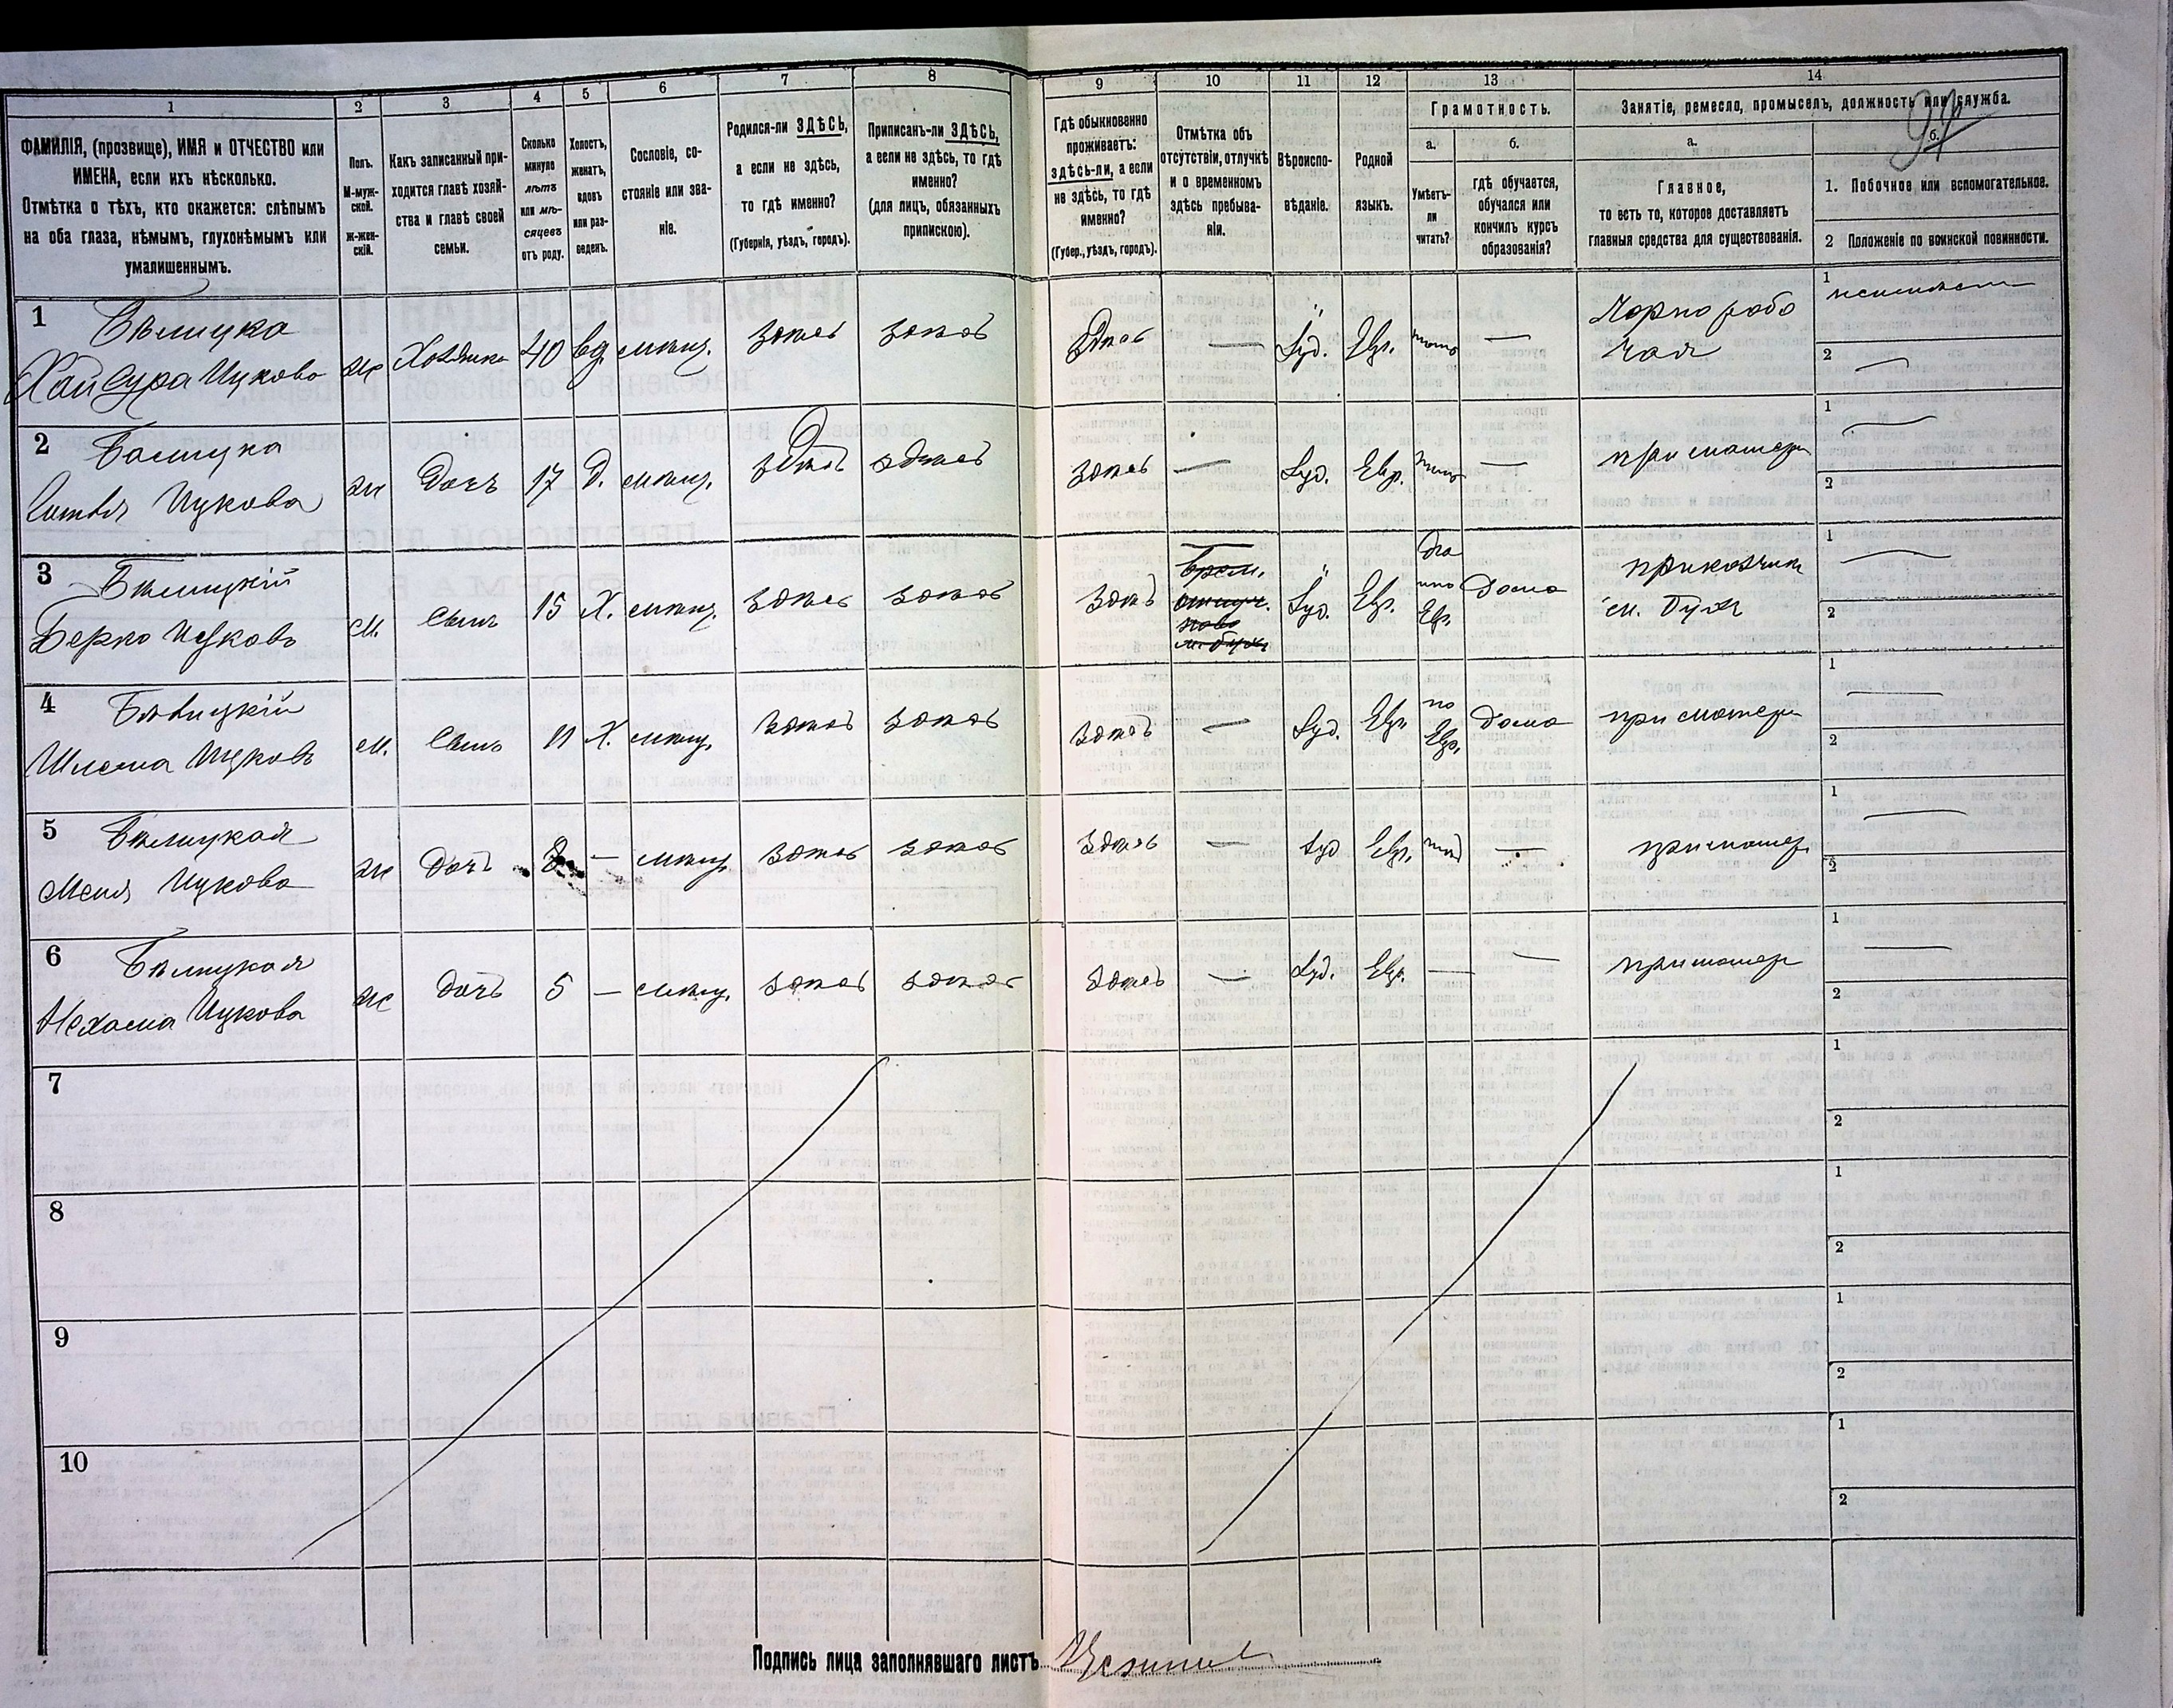 1 2 3 4 5 6 7 8 9 10 11 12 13 14
ФАМИЛІЯ, (прозвище), ИМЯ и ОТЧЕСТВО или
ИМЕНА, если ихъ нѣсколько.
Отмѣтка о тѣхъ, кто окажется: слѣпымъ
на оба глаза, нѣмымъ, глухонѣмымъ или
умалишеннымъ.
Полъ.
М-муж-
ской.
ж-жен-
скій.
Какъ записанный при-
ходится главѣ хозяй-
ства и главѣ своей
семьи.
Сколько
минуло
лѣтъ
или мѣ-
сяцевъ
отъ роду.
Холостъ,
женатъ,
вдовъ
или раз-
веденъ.
Сословіе, со-
стояніе или зва-
ніе.
Родился-ли ЗДѢСЬ,
а если не здѣсь,
то гдѣ именно?
(Губернія, уѣздъ, городъ).
Приписанъ-ли ЗДѢСЬ,
а если не здѣсь, то гдѣ
именно?
(для лицъ, обязанныхъ
припискою).
Гдѣ обыкновенно
проживаетъ:
здѣсь-ли, а если
не здѣсь, то гдѣ
именно?
(Губер., уѣздъ, городъ).
Отмѣтка объ
отсутствіи, отлучкѣ
и о временномъ
здѣсь пребыва-
ніи.
Вѣроиспо-
вѣданіе.
Родной
языкъ.
Грамотность.
а.
Умѣетъ-
ли
читать?
б.
гдѣ обучается,
обучался или
кончилъ курсъ
образованія?
Занятіе, ремесло, промыселъ, должность или служба.
а.
Главное,
то есть то, которое доставляетъ
главныя средства для существованія.
б.
1. Побочное или вспомогательное.
2 Положеніе по воинской повинности.
1 Хозяйка 40 вд. мѣщ. здѣсь здѣсь здѣсь — Іуд. Евр. нѣтъ — Чорнорабо
чая
2 Цукова ж Дочь 17 Д. мѣщ. здѣсь здѣсь здѣсь — Іуд. Евр. нѣтъ — при матери
3 Бѣлицкій
Берко Цуковъ М. Сынъ 15 Х. мѣщ. здѣсь здѣсь здѣсь Іуд. Евр. да
по
Евр. дома
4 Бѣлицкій
Шлема Цуковъ М. Сынъ 11 Х. мѣщ. здѣсь здѣсь здѣсь — Іуд. Евр. по
Евр. дома при матери
5 Бѣлицкая
Цукова ж Дочь 8 — мѣщ. здѣсь здѣсь здѣсь — Іуд Евр. нѣтъ — при матер
6 Бѣлицкая
Нехама Цукова ж дочь 5 — мѣщ. здѣсь здѣсь здѣсь — Іуд. Евр. — — при матер
7
8
9
10
Подпись лица заполнявшаго листъ